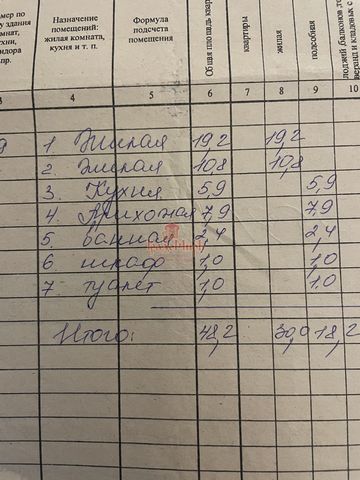 мер по
у здания
мнат,
ухни,
ридора
пр.
Назначение
помещений:
жилая комната,
кухня и т. п.
Формула
подсчета
помещения
Общая площадь квар
квартиры
жилая
подсобная
лоджий балконов те
веранд и кладовых с
3 4 5 6 7 8 9 10
1. Жилая 19,2 19,2
2. жилая 10,8 10,8
3. Кухня 5,9 5,9
4. Прихожая 7,9 7,9
5. ванная 2,4 2,4
6 шкаф 1,0 1,0
7. туалет 1,0 1,0
Итого: 48,2 30,0 18,2